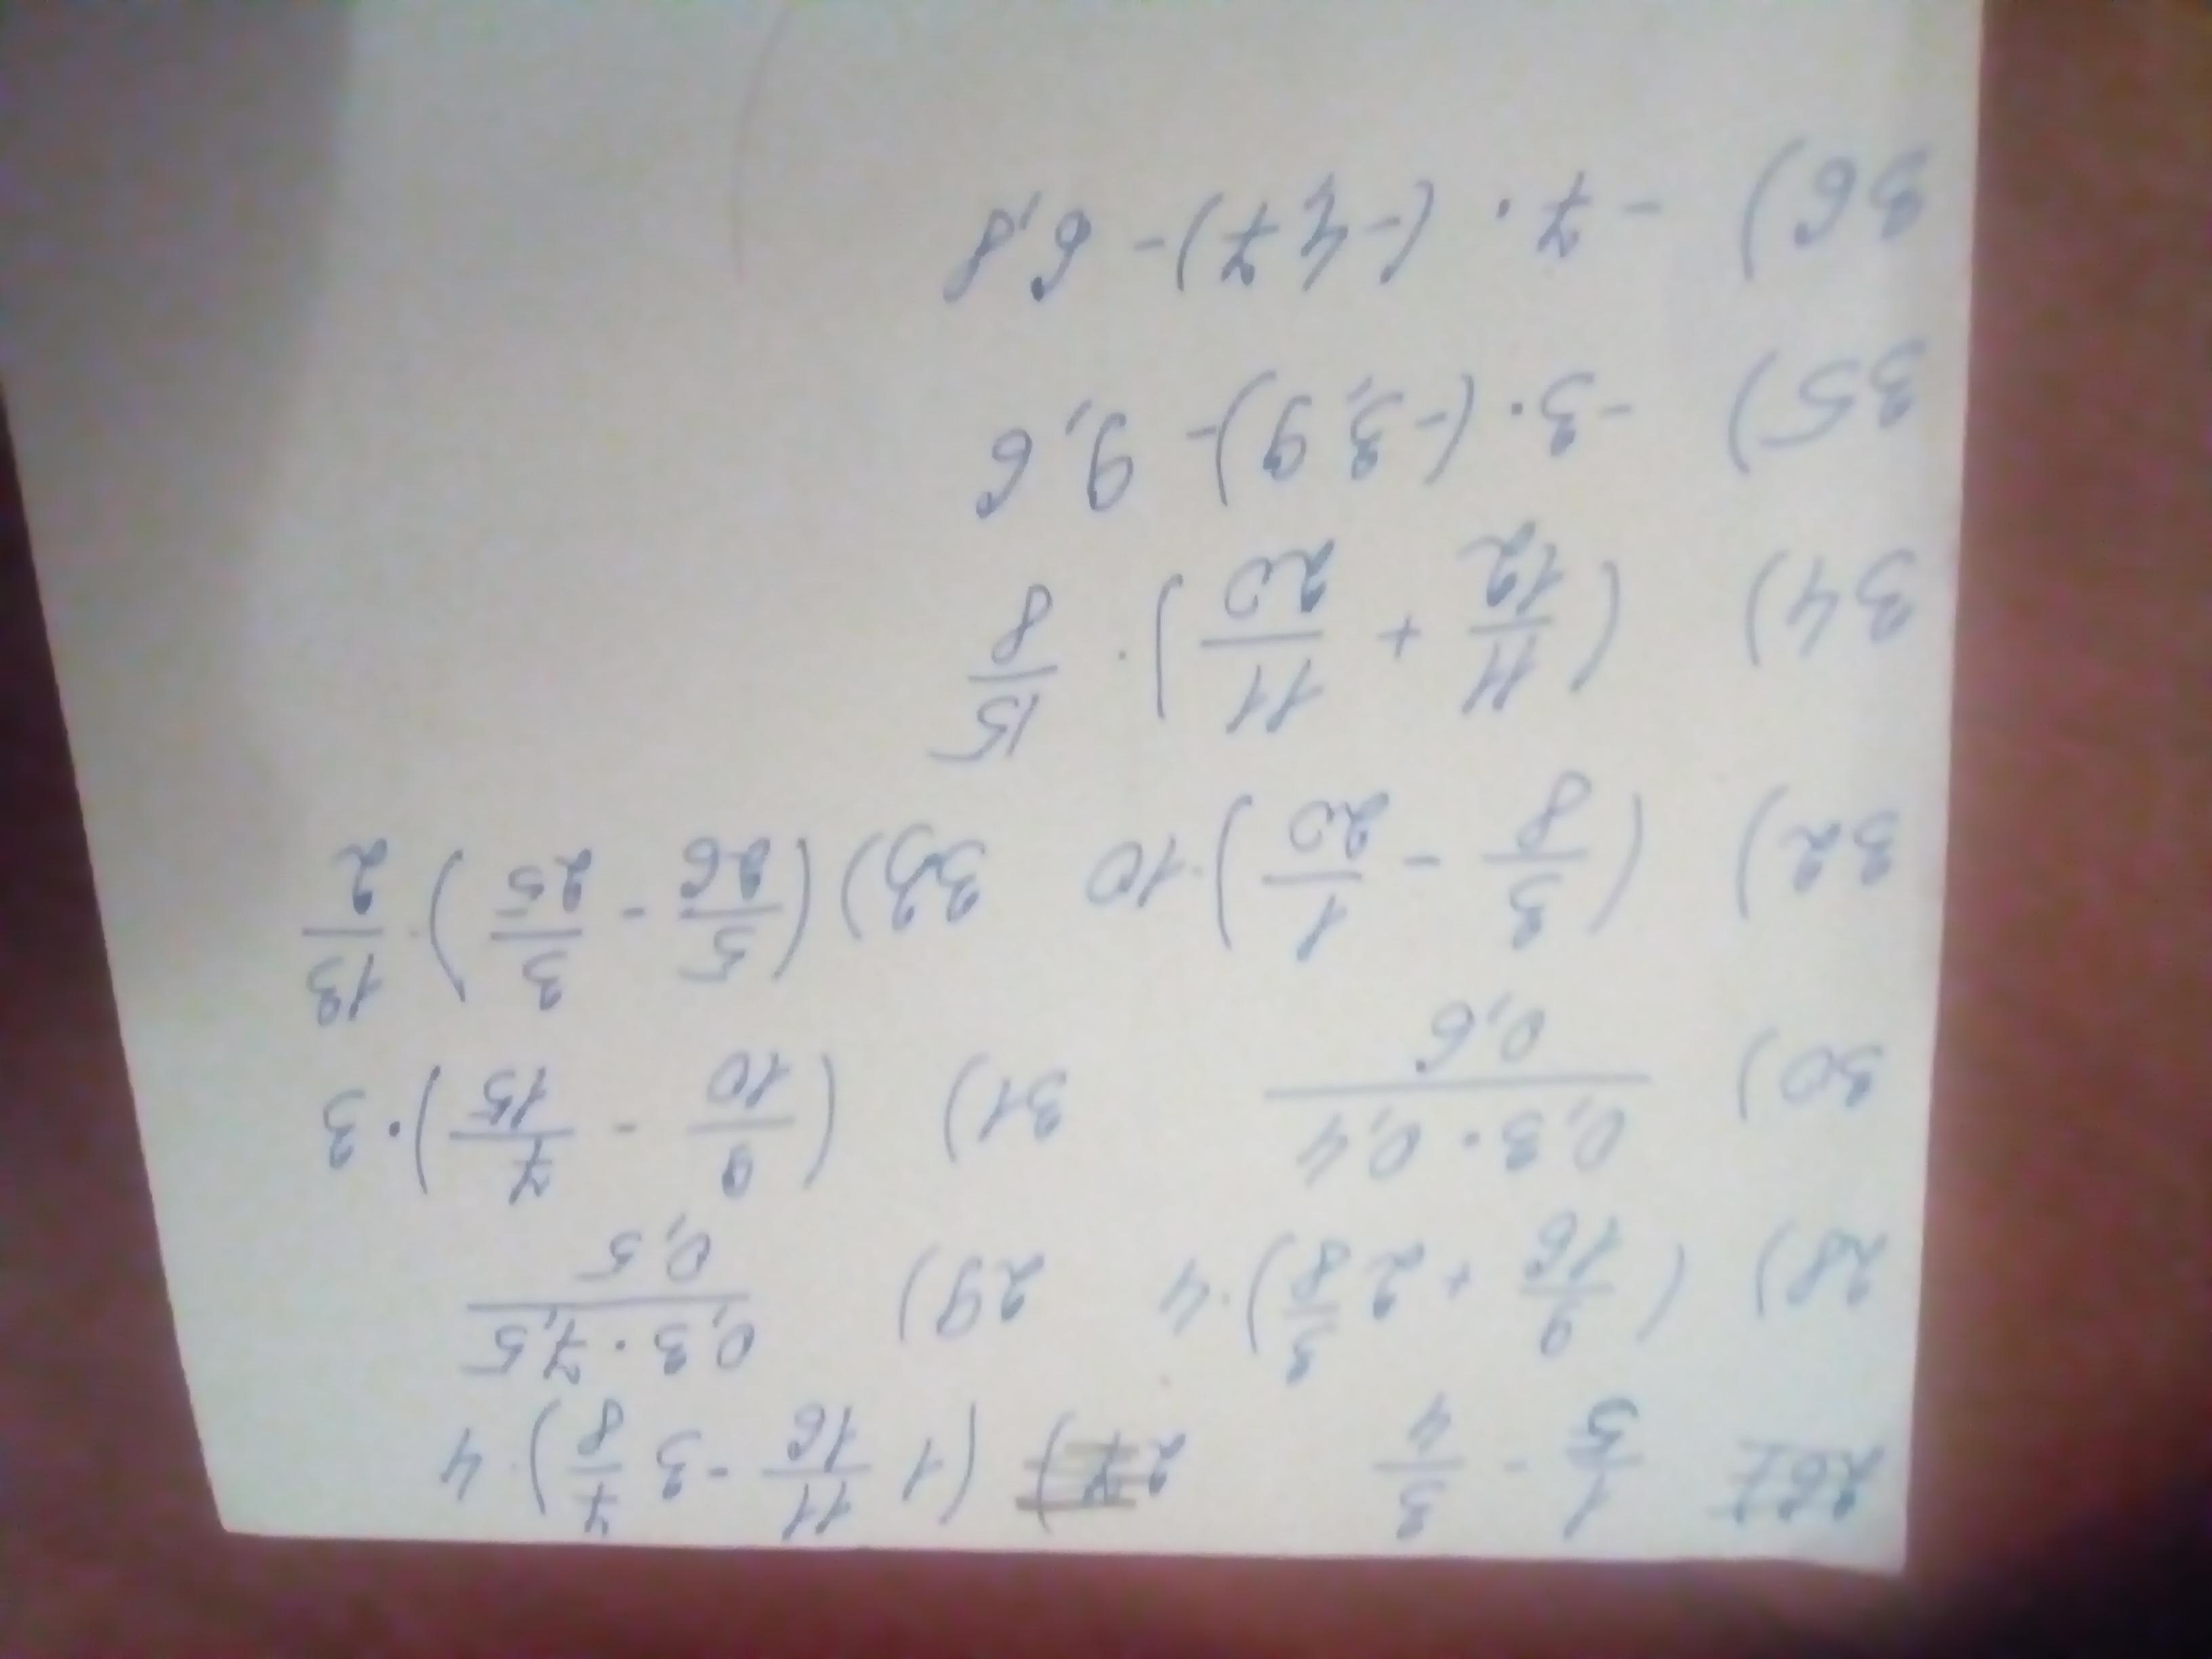 26) 1/5 - 3/4 27) (1 11/16 - 3 7/8) · 4
28) (9/16 + 2 3/8) · 4 29) 0,3 · 7,5 / 0,5
30) 0,3 · 0,4 / 0,6 31) (9/10 - 7/15) · 3
32) (3/8 - 1/20) · 10 33) (5/26 - 3/25) · 13/2
34) (11/12 + 11/20) · 15/8
35) -3 · (-3,9) - 9,6
36) -7 · (-4 7) - 6,8